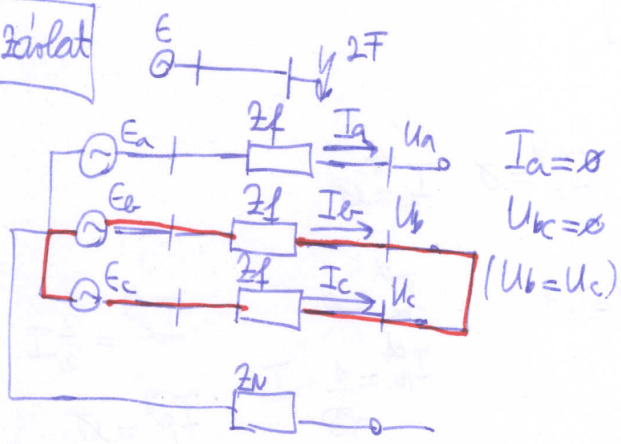 zárlat
E
2F
Ea
Zf
Ia
Ua
Ia=ø
Eb
Zf
Ib
Ub
Ubc=ø
Ec
Zf
Ic
Uc
(Ub=Uc)
ZN